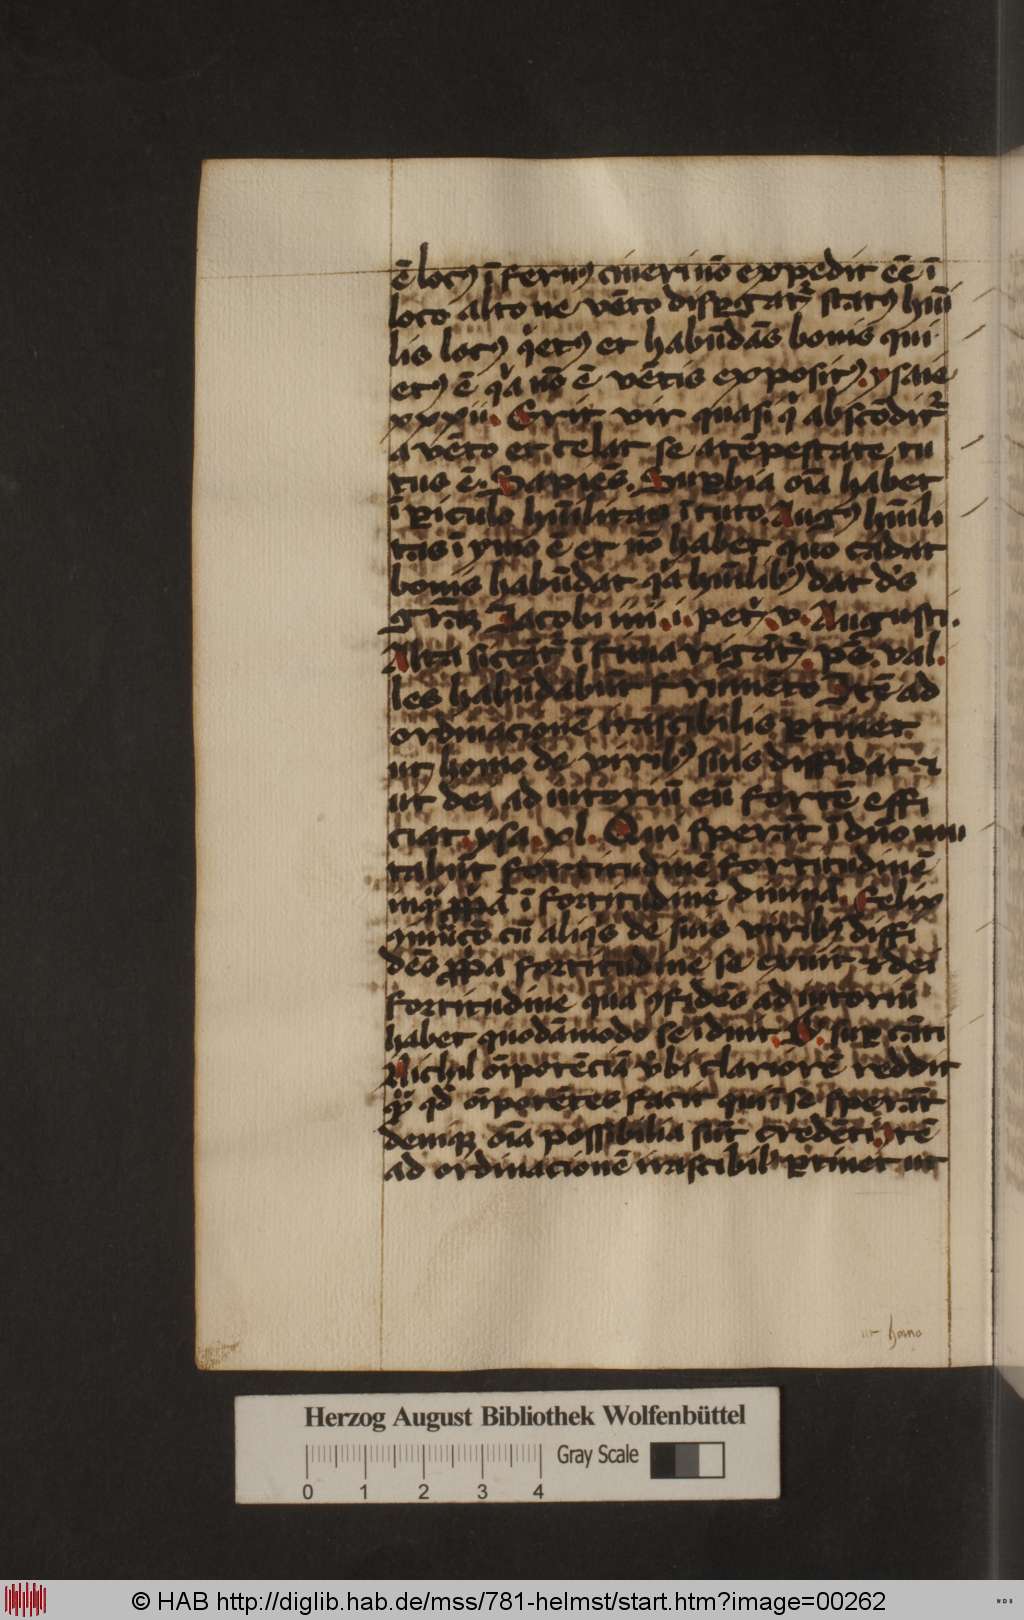 ē locꝰ īfernꝰ cineri nō expedit eē ī
loco alto ne vēto dispgat᷑ statꝰ hūi
lis locꝰ qͥetꝰ et habūdās bonis qui
etꝰ ē qͥa nō ē vētis expositꝰ. ysaie
xxxii. Erit vir quasi qͥ abscōdit᷑
a vēto et celat se a tēpestate tu
tus ē. Sapiēs. Suꝑbia oīa habet
ī ꝑiculo hūilitas ī tuto. Augꝰ hūili
tas ī ymo ē et nō habet quo cadat
bonis habūdat qͥa hūilibꝰ dat dēs
grāꝫ Jacobi iiii. i. petͥ. v. Augusti.
Alta siccāt᷑ īfima rigāt᷑. pͣs. val
les habūdabūt frumēto Jtē ad
ordinacionē irascibilis ꝑtinet
ut homo de viribꝰ suis diffidat ⁊
ut dei adiutoriū eū fortē effi
ciat. ysa. xl. Qui sperāt ī dn̄o mu
tabūt fortitudinē fortitudinē
inqͥt ꝓpͥā ī fortitudinē diuinā. Felix
ꝯmūtō cū aliqͥs de suis viribꝰ diffi
dēs ꝓpͥa fortitudine se exuit ⁊ dei
fortitudine qua ꝯfidēs adiutoriū
habet quodāmodo se īduit. B. suꝑ cāti
Nichil oīpotēciā v̓bi clariorē reddit
qͣꝫ qd̓ oīpotētes facit qui ī se sperāt
deniqꝫ oīa possibilia sūt credēti Jtē
ad ordinacionē irascibilꝭ ꝑtinet ut
ut homo
Herzog August Bibliothek Wolfenbüttel
Gray Scale
0 1 2 3 4
© HAB http://diglib.hab.de/mss/781-helmst/start.htm?image=00262